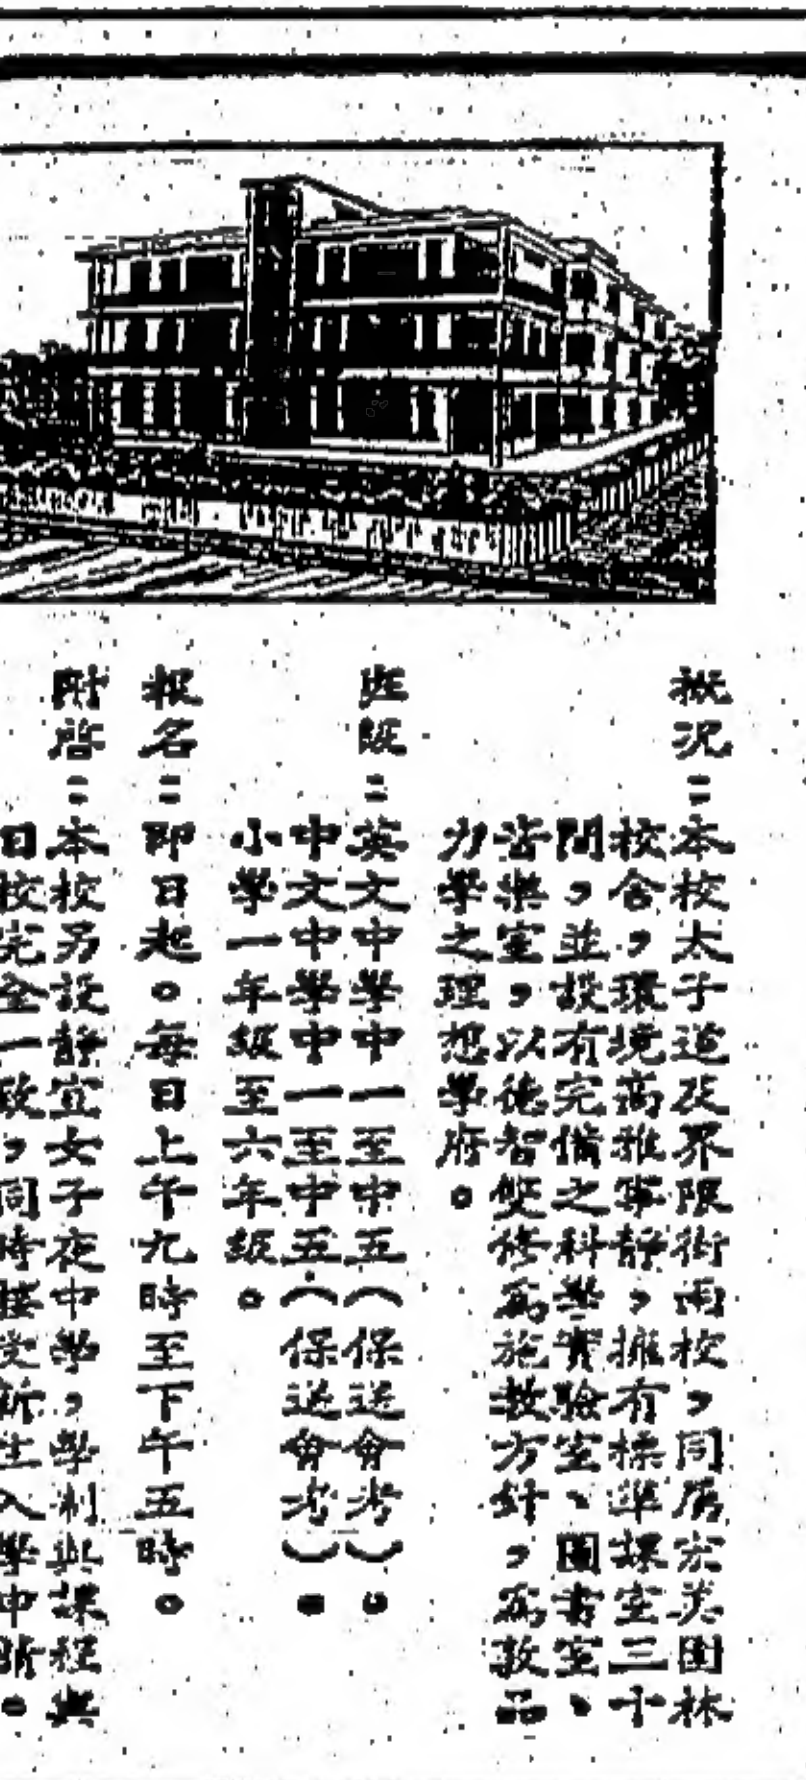 概況：本校太子道及界限街兩校，同屬宏美園林
校舍，環境高雅寧靜，擁有標準課室三十
間，並設有完備之科學實驗室、圖書室、
音樂室，以德智雙修為施教方針，為敦品
力學之理想學府。
班級：英文中學中一至中五（保送會考）。
中文中學中一至中五（保送會考）。
小學一年級至六年級。
報名：即日起。每日上午九時至下午五時。
附啓：本校另設靜宜女子夜中學，學制與課程與
日校完全一致，同時接受新生入學申請。